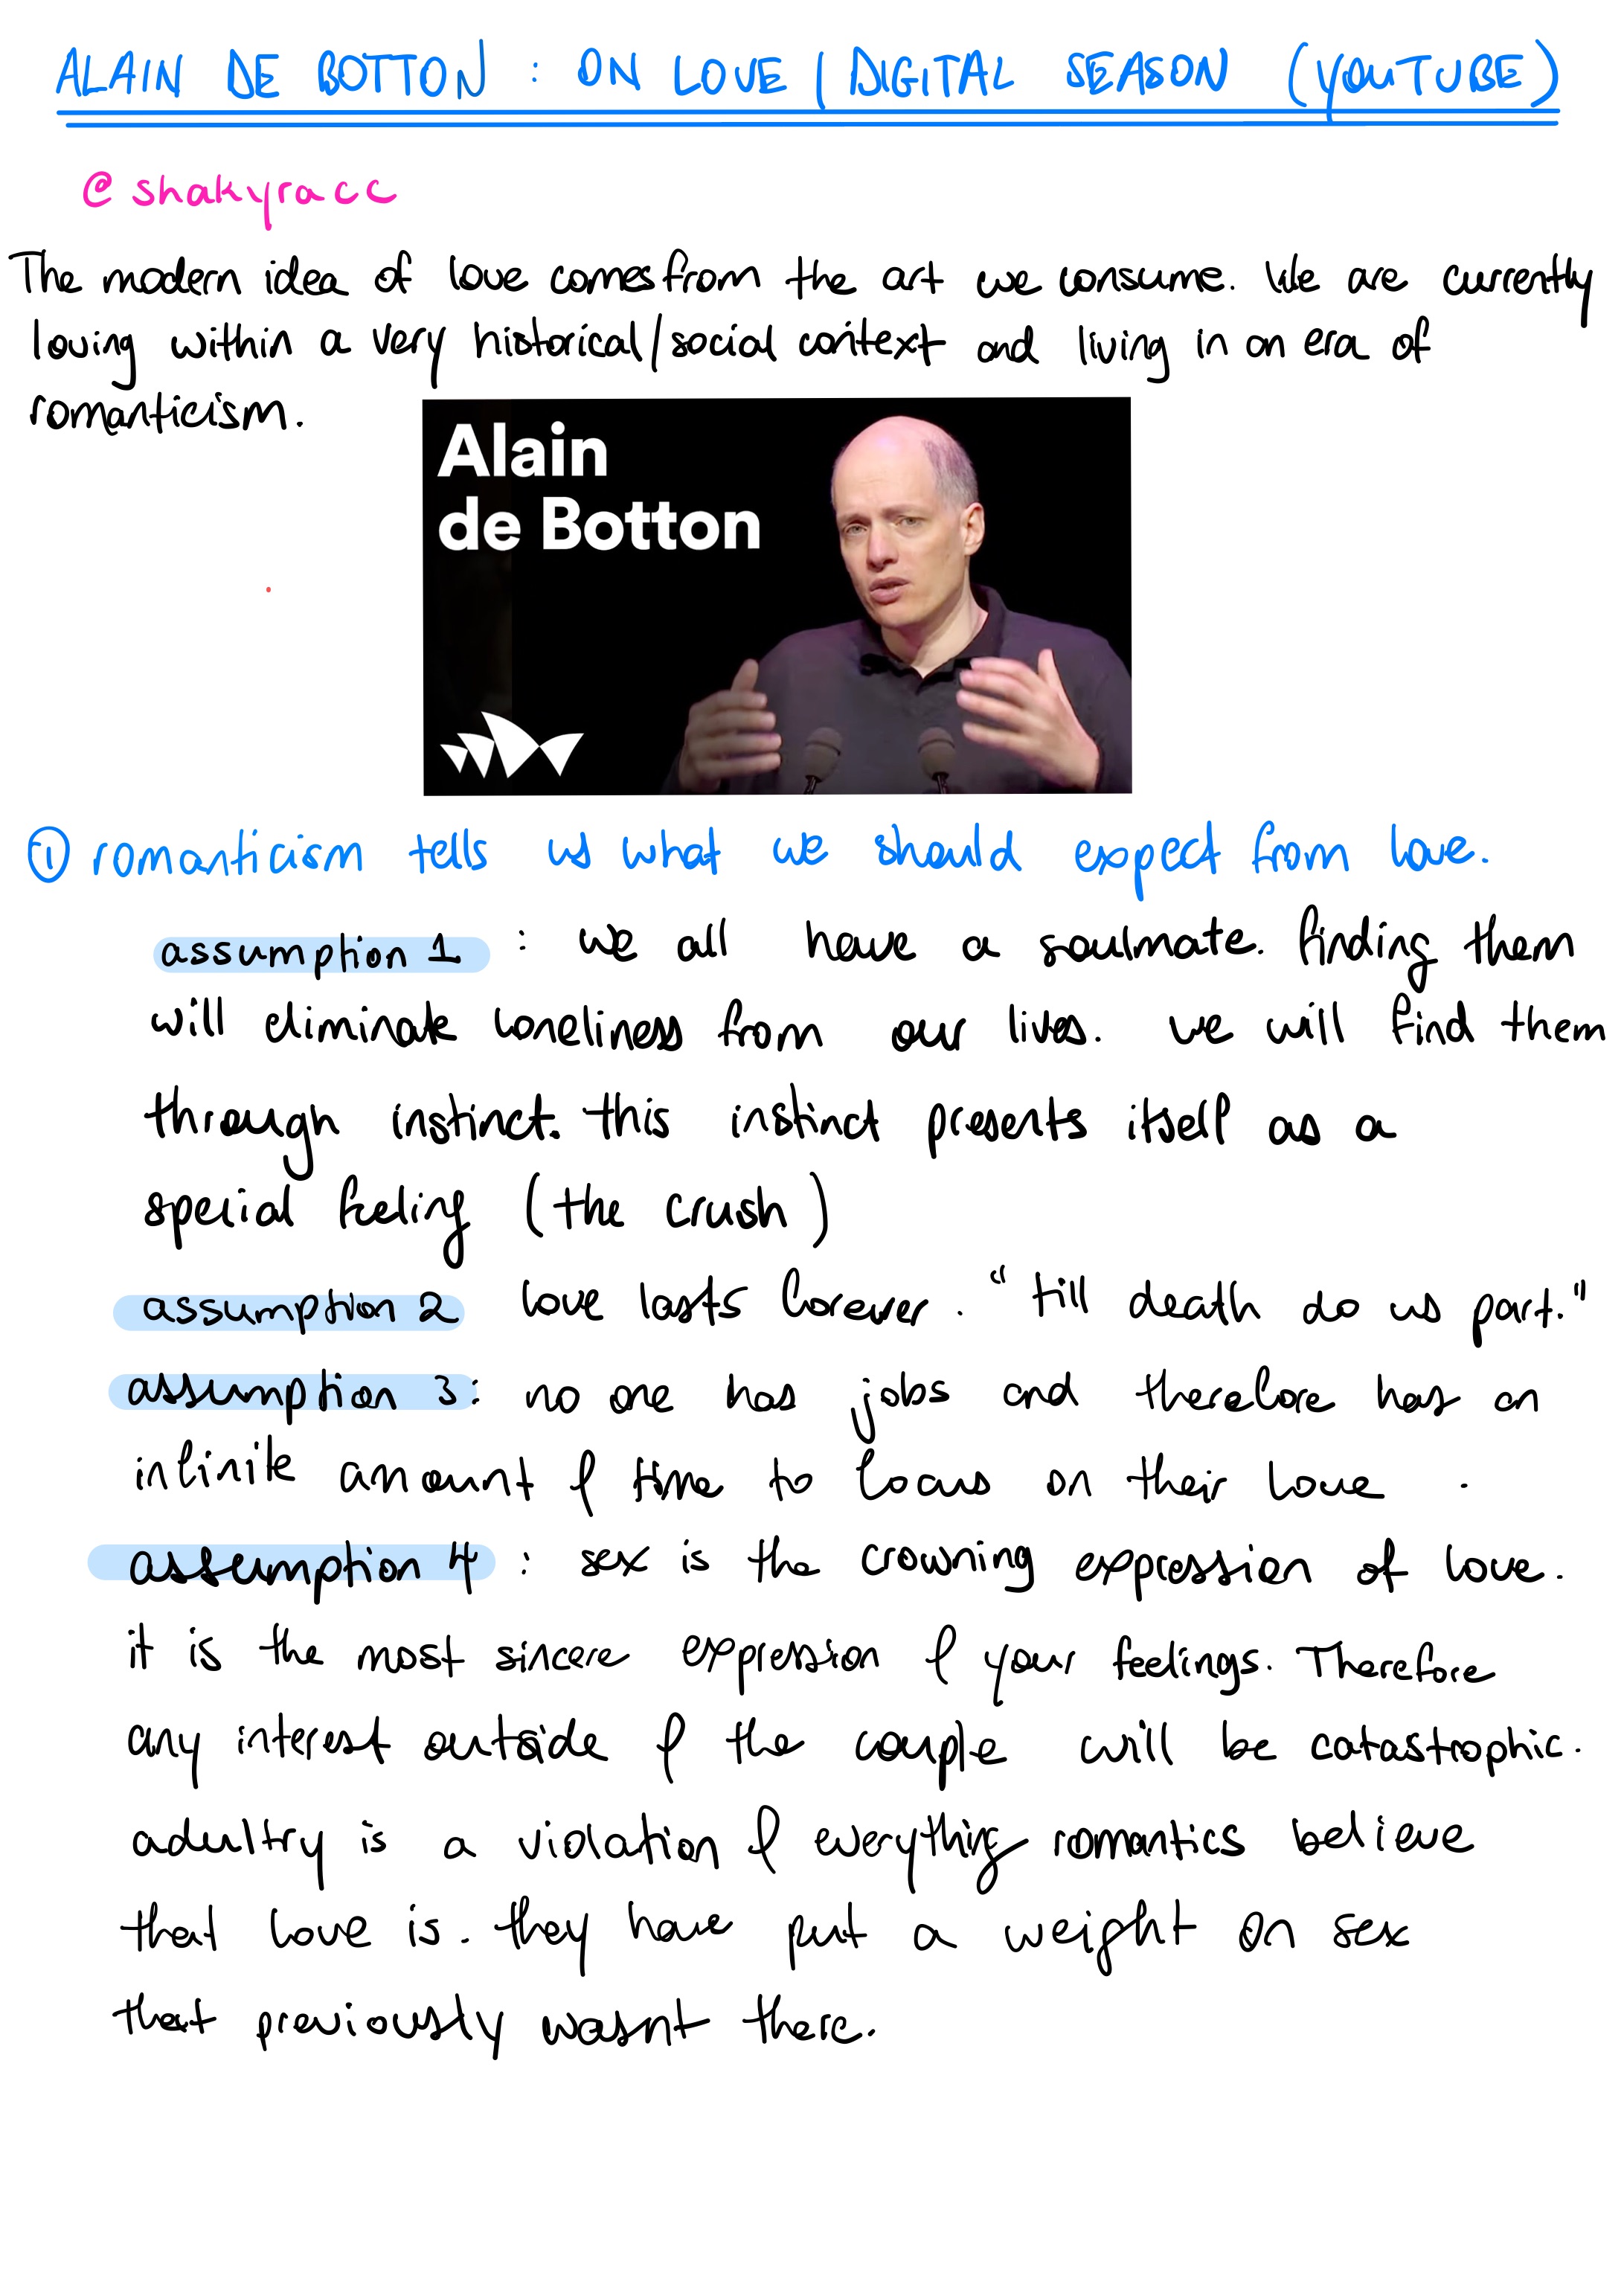 ALAIN DE BOTTON : ON LOVE | DIGITAL SEASON (YOUTUBE)
@shakyracc
The modern idea of love comes from the art we consume. We are currently
loving within a very historical/social context and living in an era of
romanticism.
Alain
de Botton
① romanticism tells us what we should expect from love.
assumption 1 : we all have a soulmate. finding them
will eliminate loneliness from our lives. we will find them
through instinct. this instinct presents itself as a
special feeling (the crush)
assumption 2 love lasts forever. "till death do us part."
assumption 3: no one has jobs and therefore has an
infinite amount of time to focus on their love .
assumption 4 : sex is the crowning expression of love.
it is the most sincere expression of your feelings. Therefore
any interest outside of the couple will be catastrophic.
adultry is a violation of everything romantics believe
that love is. they have put a weight on sex
that previously wasnt there.